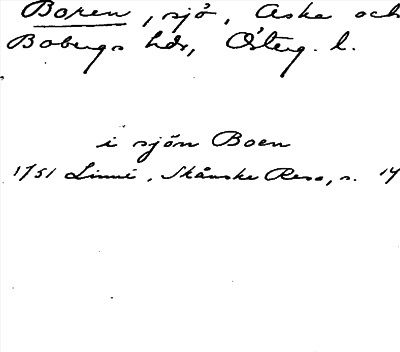 Boren, sjö, Aska och
Bobergs hdr, Österg. l.
i sjön Boen
1751 Linné, Skånska Resa, s. 14